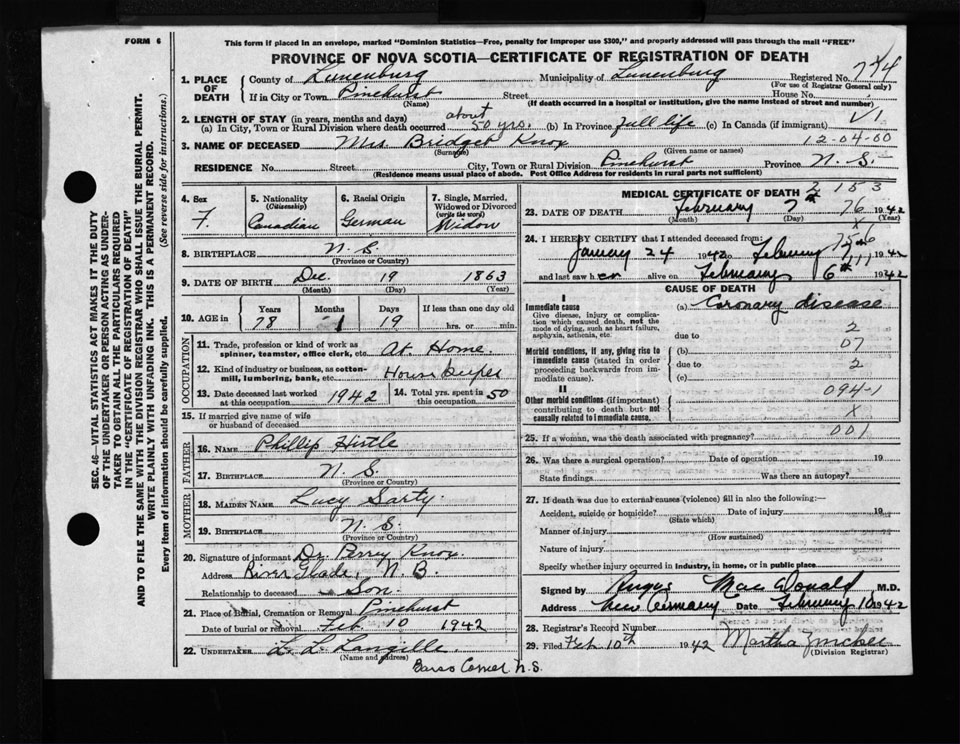 FORM 6
This form if placed in an envelope, marked "Dominion Statistics—Free, penalty for improper use $300," and properly addressed will pass through the mail "FREE"
PROVINCE OF NOVA SCOTIA—CERTIFICATE OF REGISTRATION OF DEATH
SEC. 46—VITAL STATISTICS ACT MAKES IT THE DUTY
OF THE UNDERTAKER OR PERSON ACTING AS UNDER-
TAKER TO OBTAIN ALL THE PARTICULARS REQUIRED
IN THE "CERTIFICATE OF REGISTRATION OF DEATH"
AND TO FILE THE SAME WITH THE DIVISION REGISTRAR WHO SHALL ISSUE THE BURIAL PERMIT.
WRITE PLAINLY WITH UNFADING INK. THIS IS A PERMANENT RECORD.
Every item of information should be carefully supplied. (See reverse side for instructions.)
1. PLACE OF DEATH County of Lunenburg Municipality of Lunenburg Registered No. 774
(For use of Registrar General only)
If in City or Town Pinehurst Street House No.
(Name) (If death occurred in a hospital or institution, give the name instead of street and number)
2. LENGTH OF STAY (in years, months and days) about VI
(a) In City, Town or Rural Division where death occurred 50 yrs. (b) In Province full life (c) In Canada (if immigrant)
3. NAME OF DECEASED Mrs. Bridget Knox 12-04-00
(Surname) (Given name or names)
RESIDENCE No. Street City, Town or Rural Division Pinehurst Province N. S.
(Residence means usual place of abode. Post Office Address for residents in rural parts not sufficient)
4. Sex F.
5. Nationality (Citizenship) Canadian
6. Racial Origin German
7. Single, Married, Widowed or Divorced (write the word) Widow
8. BIRTHPLACE N. S.
(Province or Country)
9. DATE OF BIRTH Dec. 19 1863
(Month) (Day) (Year)
10. AGE in Years 78 Months 1 Days 19 If less than one day old hrs. or min.
OCCUPATION
11. Trade, profession or kind of work as spinner, teamster, office clerk, etc. At Home.
12. Kind of industry or business, as cotton-mill, lumbering, bank, etc. House Keeper
13. Date deceased last worked at this occupation 1942
14. Total yrs. spent in this occupation 50
15. If married give name of wife or husband of deceased
FATHER
16. NAME Phillip Hirtle
17. BIRTHPLACE N. S.
(Province or Country)
MOTHER
18. MAIDEN NAME Lucy Sarty.
19. BIRTHPLACE N. S.
(Province or Country)
20. Signature of informant Dr. Perry Knox.
Address River Glade, N. B.
Relationship to deceased Son.
21. Place of Burial, Cremation or Removal Pinehurst
Date of burial or removal Feb 10 1942
22. UNDERTAKER L. L. Langille.
(Name and address)
Barss Corner N.S.
MEDICAL CERTIFICATE OF DEATH 2 153
23. DATE OF DEATH February 7th 76 1942
(Month) (Day) (Year)
24. I HEREBY CERTIFY that I attended deceased from:
January 24 1942 to February 7th 1942
and last saw her alive on February 6th 1942
CAUSE OF DEATH
I
Immediate cause
Give disease, injury or complication which caused death, not the mode of dying, such as heart failure, asphyxia, asthenia, etc.
(a) Coronary disease
due to 2
07
Morbid conditions, if any, giving rise to immediate cause (stated in order proceeding backwards from immediate cause).
(b)
due to 2
(c)
II 094-1
Other morbid conditions (if important) contributing to death but not causally related to immediate cause. X
25. If a woman, was the death associated with pregnancy? 001
26. Was there a surgical operation? Date of operation 19
State findings Was there an autopsy?
27. If death was due to external causes (violence) fill in also the following:—
Accident, suicide or homicide? Date of injury 19
(State which)
Manner of injury
(How sustained)
Nature of injury
Specify whether injury occurred in industry, in home, or in public place
Signed by Angus MacDonald M.D.
Address New Germany Date February 10 1942
28. Registrar's Record Number
29. Filed Feb 10th 1942 Martha
(Division Registrar)